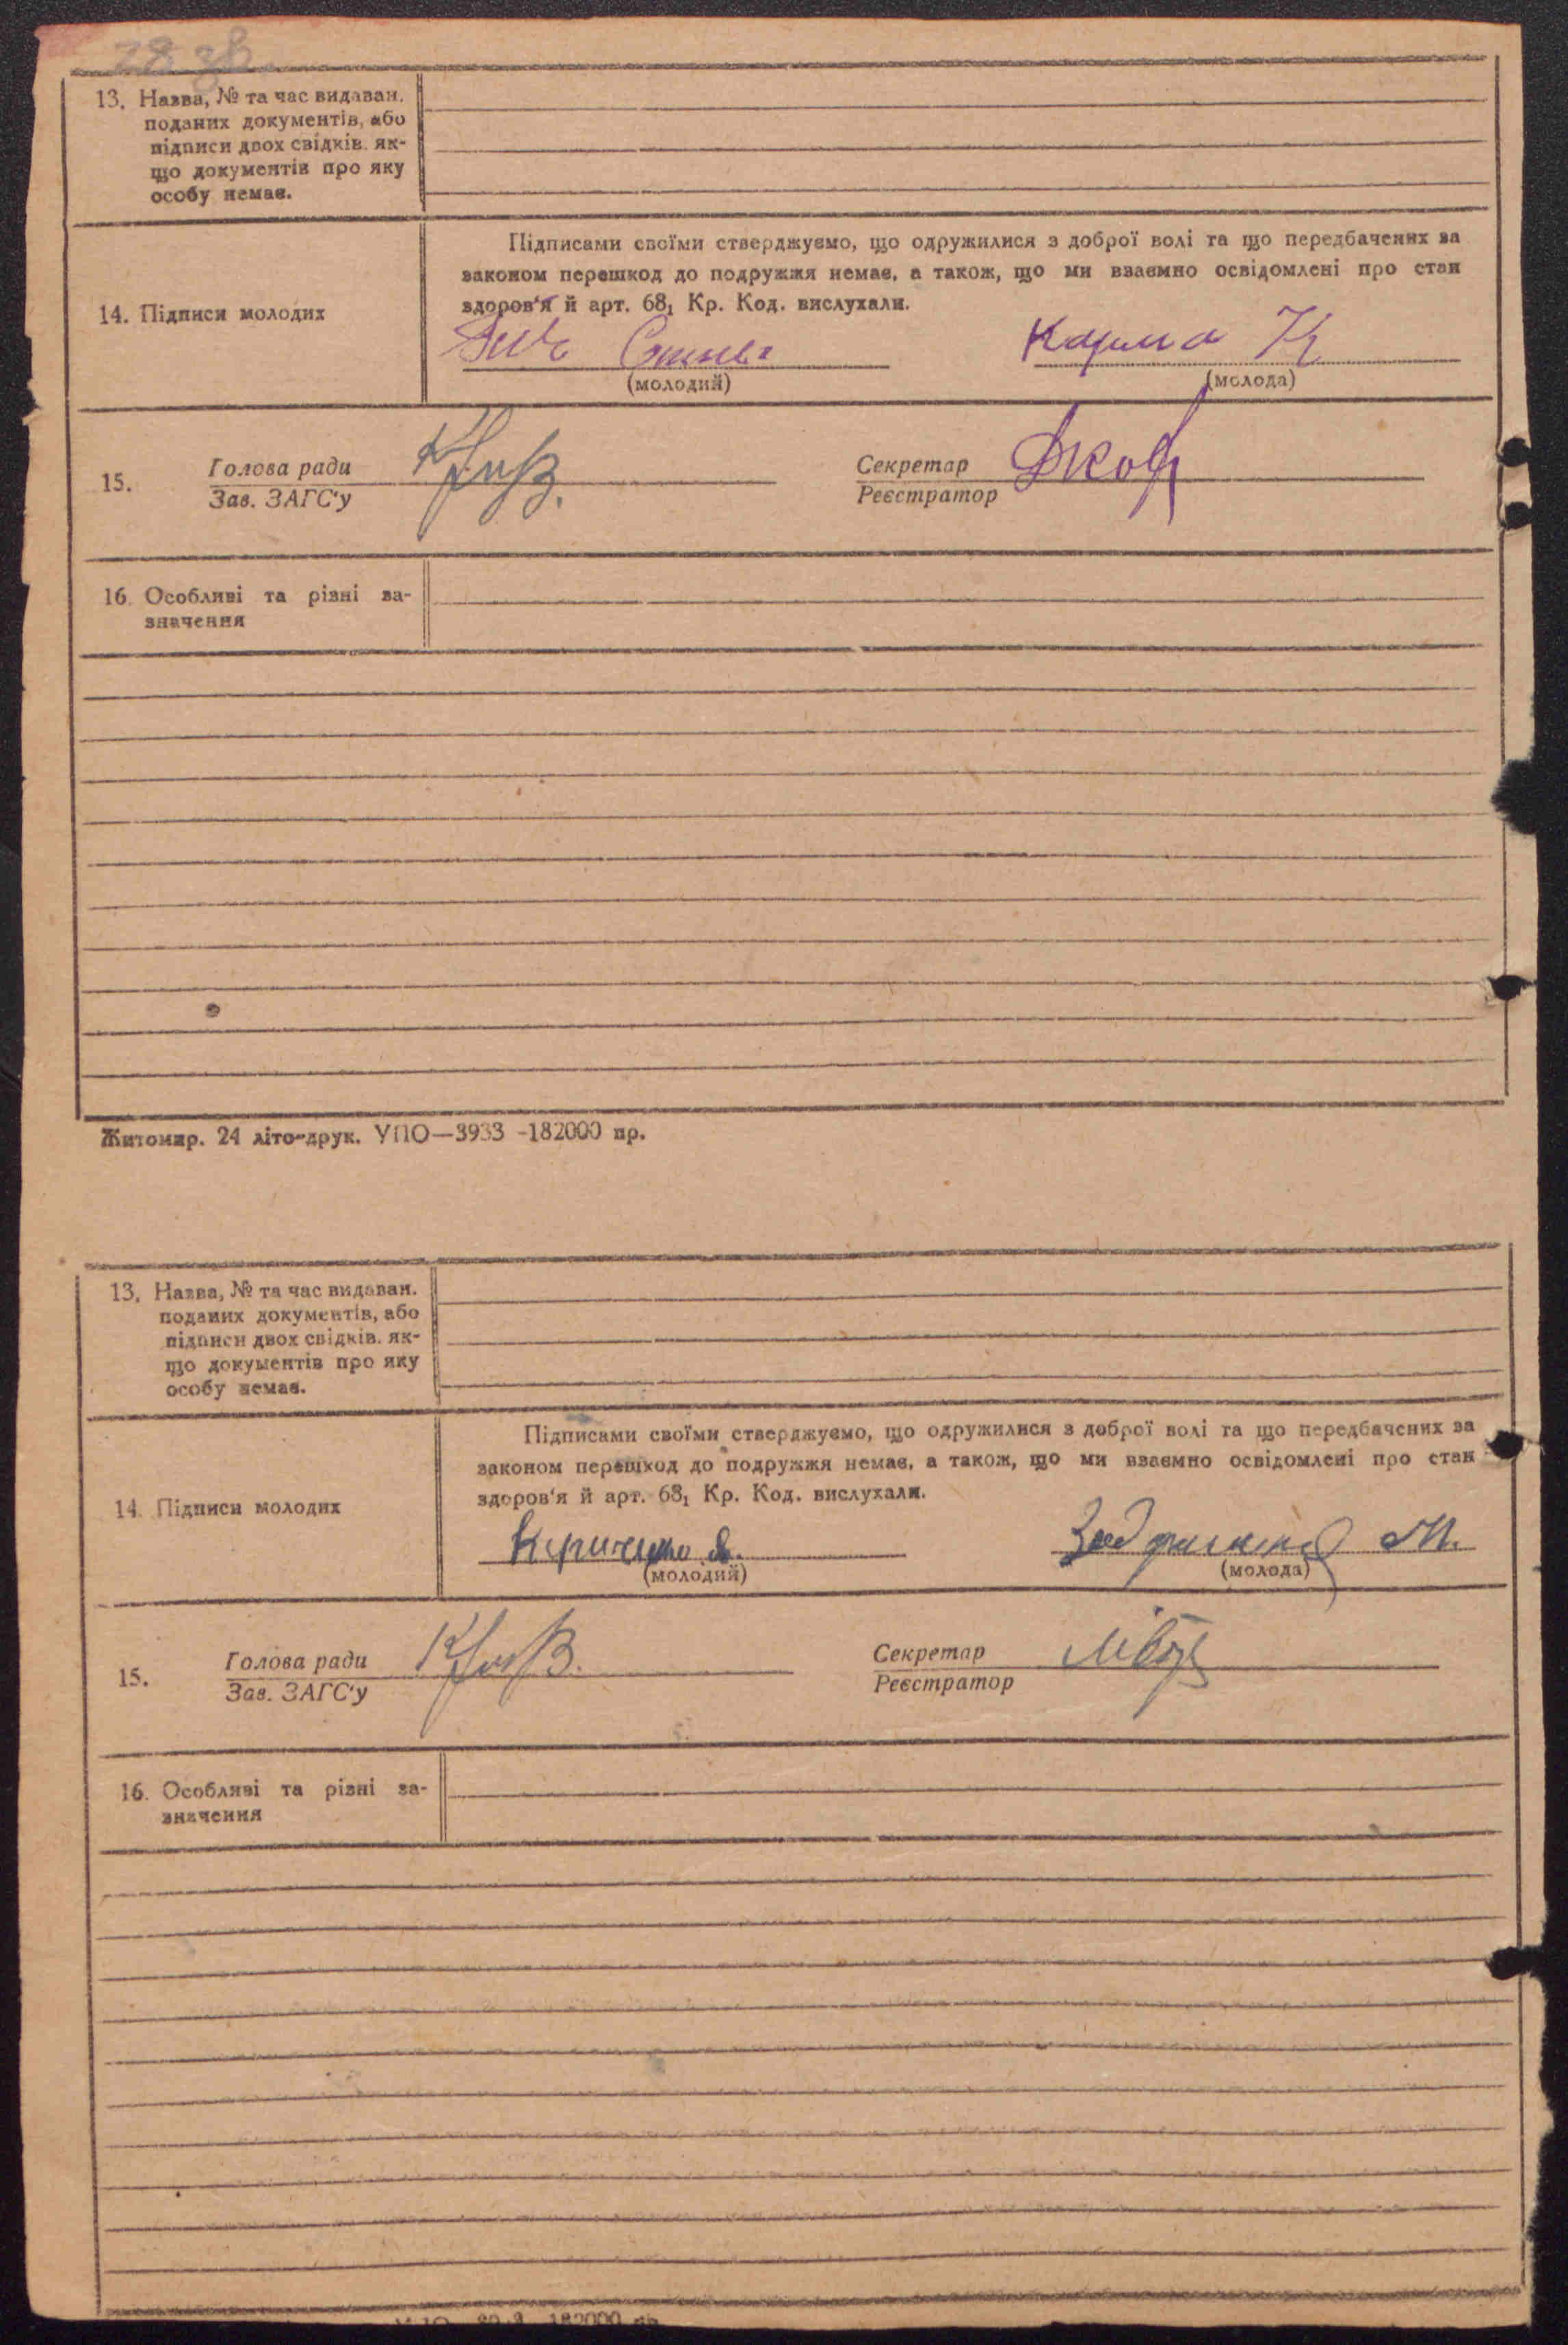 28 зв.
13. Назва, № та час видаван.
поданих документів, або
підписи двох свідків. як-
що документів про яку
особу немає.
Підписами своїми стверджуємо, що одружилися з доброї волі та що передбачених за
законом перешкод до подружжя немає, а також, що ми взаємно освідомлені про стан
здоров'я й арт. 68₁ Кр. Код. вислухали.
14. Підписи молодих
(молодий) (молода)
15. Голова ради Секретар
Зав. ЗАГС'у Реєстратор
16. Особливі та різні за-
значення
Житомир. 24 літо-друк. УПО—3933 -182000 пр.
13. Назва, № та час видаван.
поданих документів, або
підписи двох свідків. як-
що документів про яку
особу немає.
Підписами своїми стверджуємо, що одружилися з доброї волі та що передбачених за
законом перешкод до подружжя немає, а також, що ми взаємно освідомлені про стан
здоров'я й арт. 68₁ Кр. Код. вислухали.
14. Підписи молодих
(молодий) (молода)
15. Голова ради Секретар
Зав. ЗАГС'у Реєстратор
16. Особливі та різні за-
значення
182000